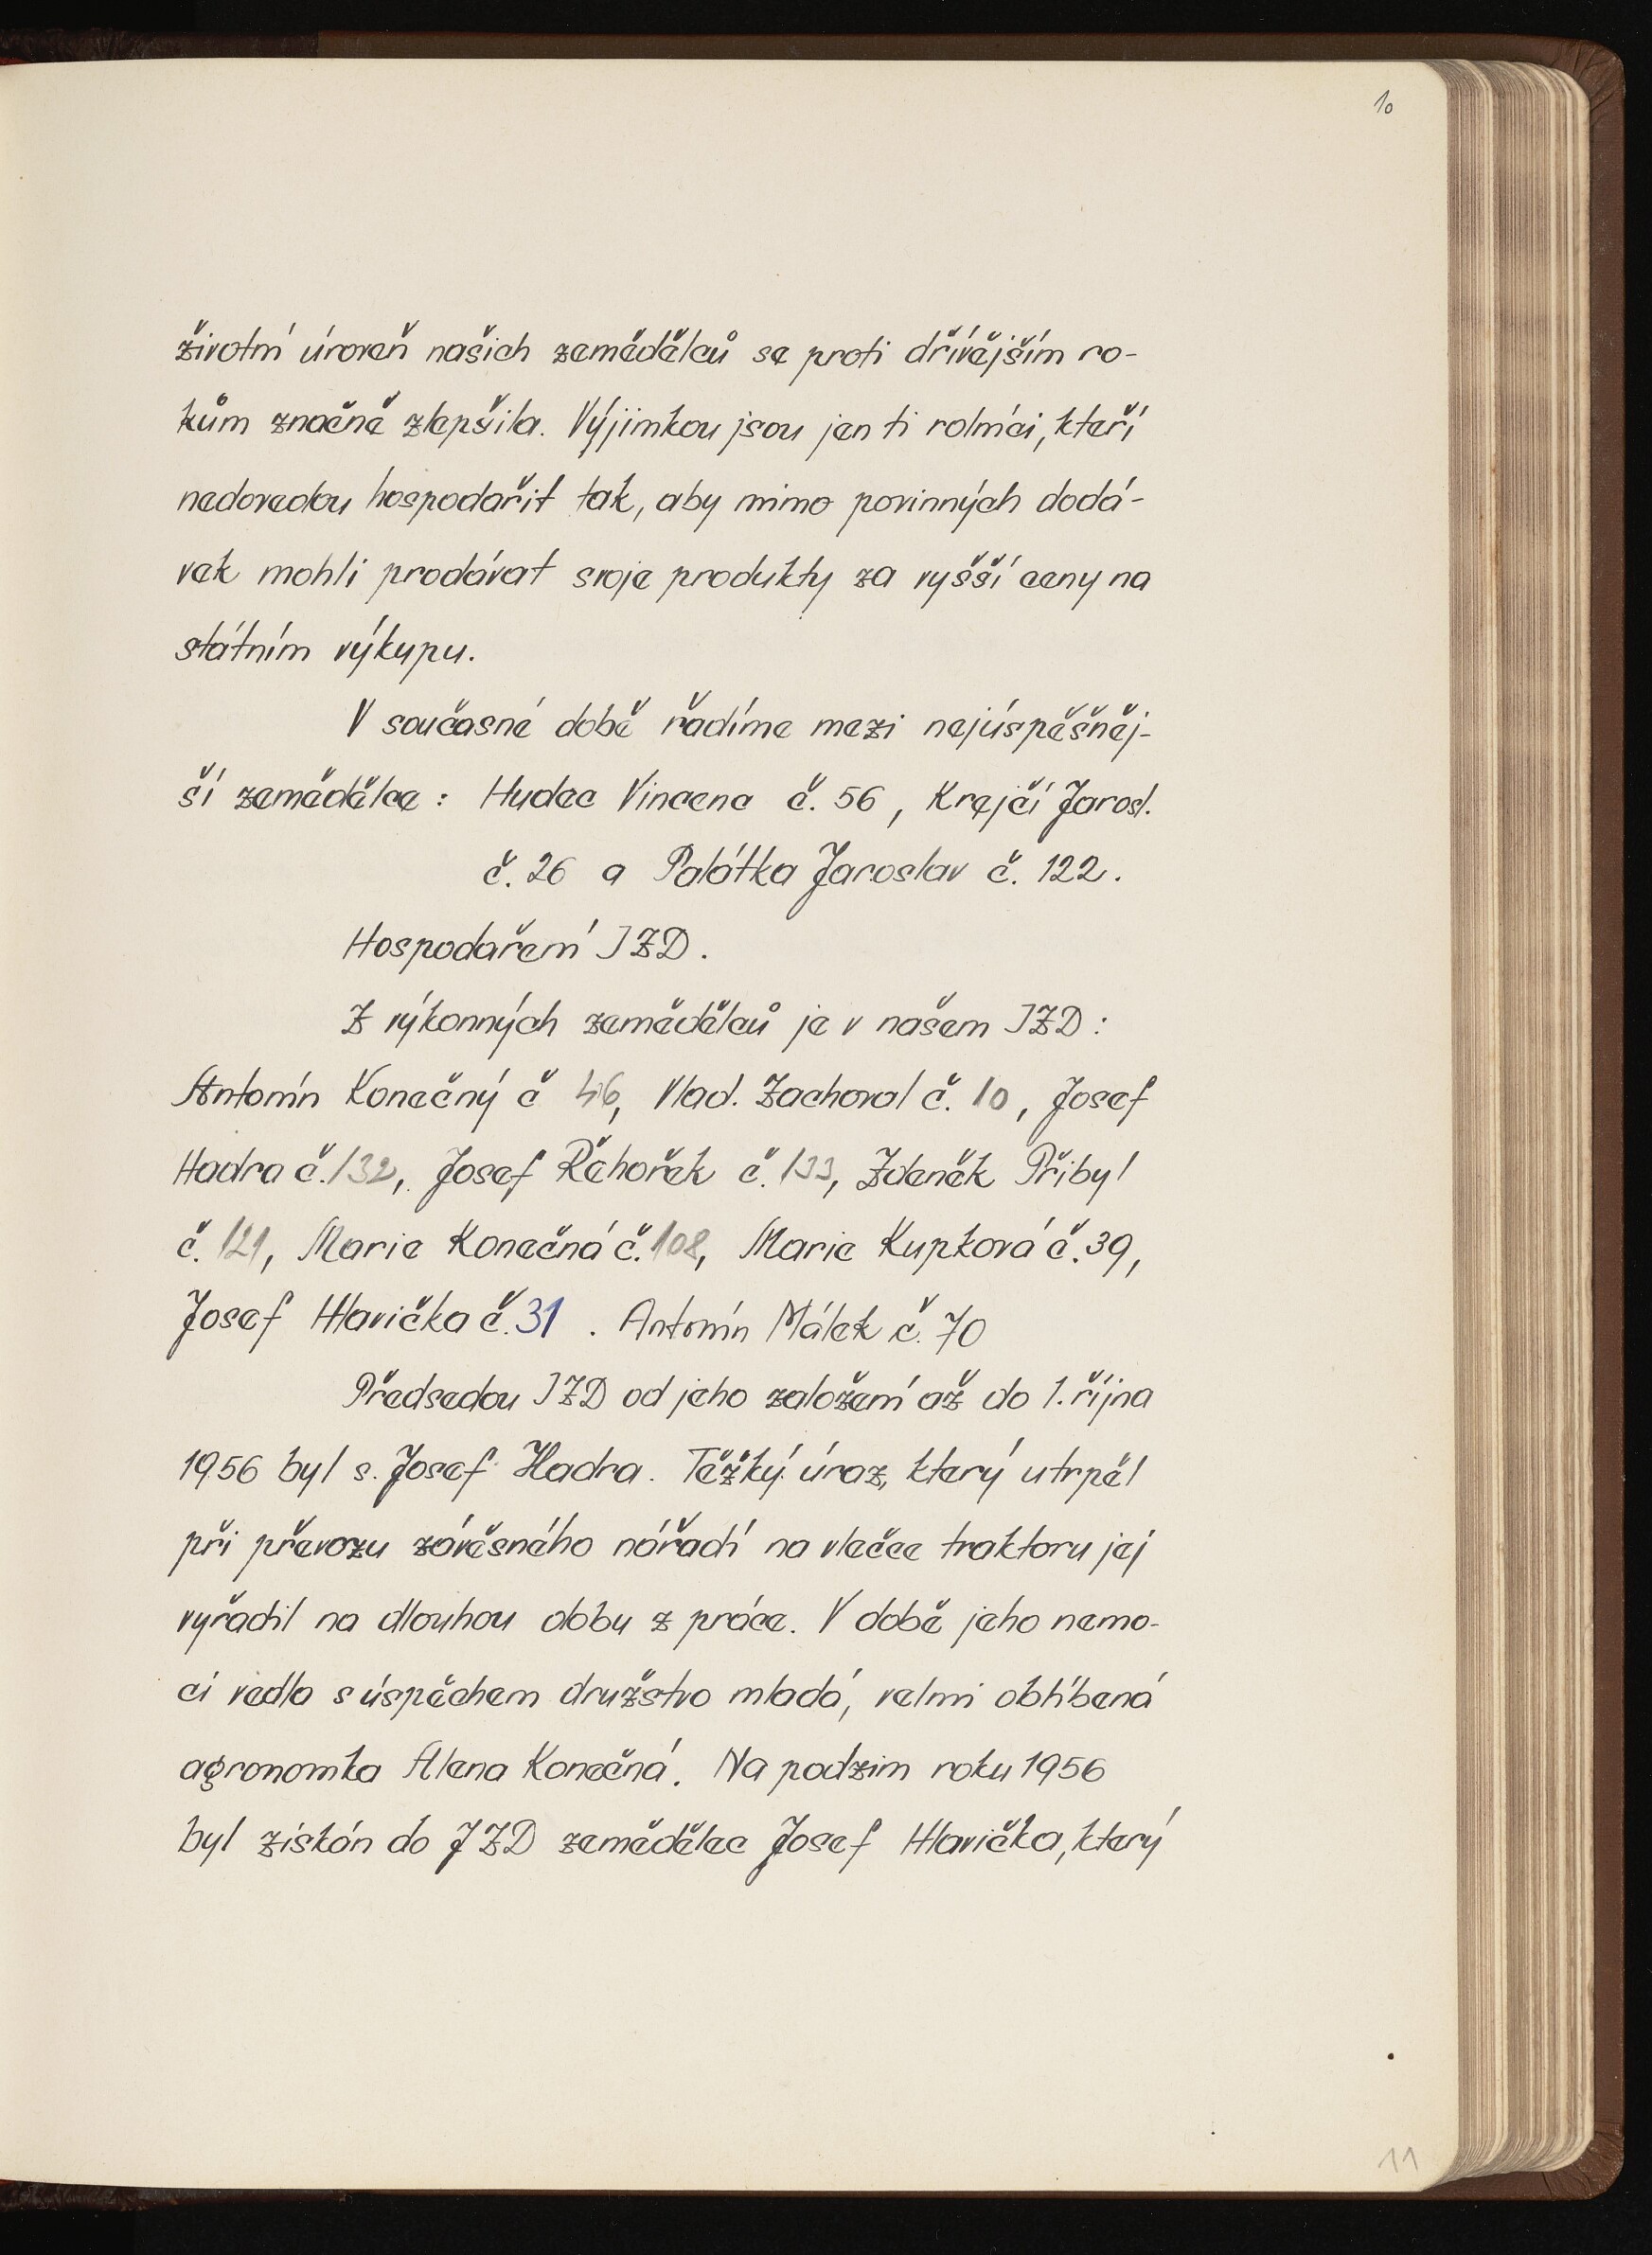 10
životní úroveň našich zemědělců se proti dřívějším ro-
kům značně zlepšila. Výjimkou jsou jen ti rolníci, kteří
nedovedou hospodařit tak, aby mimo povinných dodá-
vek mohli prodávat svoje produkty za vyšší ceny na
státním výkupu.
V současné době řadíme mezi nejúspěšněj-
ší zemědělce : Hudec Vincenc č. 56 , Krejčí Jarosl.
č. 26 a Palátka Jaroslav č. 122 .
Hospodaření JZD .
Z výkonných zemědělců je v našem JZD :
Antonín Konečný č 46, Vlad. Zachoval č. 10 , Josef
Hadra č. 132, Josef Řehořek č. 133, Zdeněk Přibyl
č. 121, Marie Konečná č. 108, Marie Kupková č. 39,
Josef Hlavička č. 31 . Antonín Málek č. 70
Předsedou JZD od jeho založení až do 1. října
1956 byl s. Josef Hadra. Těžký úraz, který utrpěl
při převozu závěsného nářadí na vlečce traktoru jej
vyřadil na dlouhou dobu z práce. V době jeho nemo-
ci vedla s úspěchem družstvo mladá, velmi oblíbená
agronomka Alena Konečná. Na podzim roku 1956
byl získán do JZD zemědělec Josef Hlavička, který
11